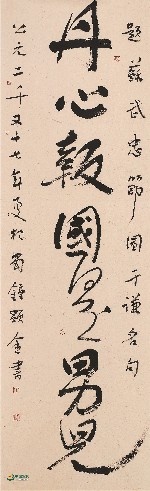 題蘇武忠節圖于谦名句
丹心報國是男兒
公元二千又十七年夏於蜀鍾顕金書